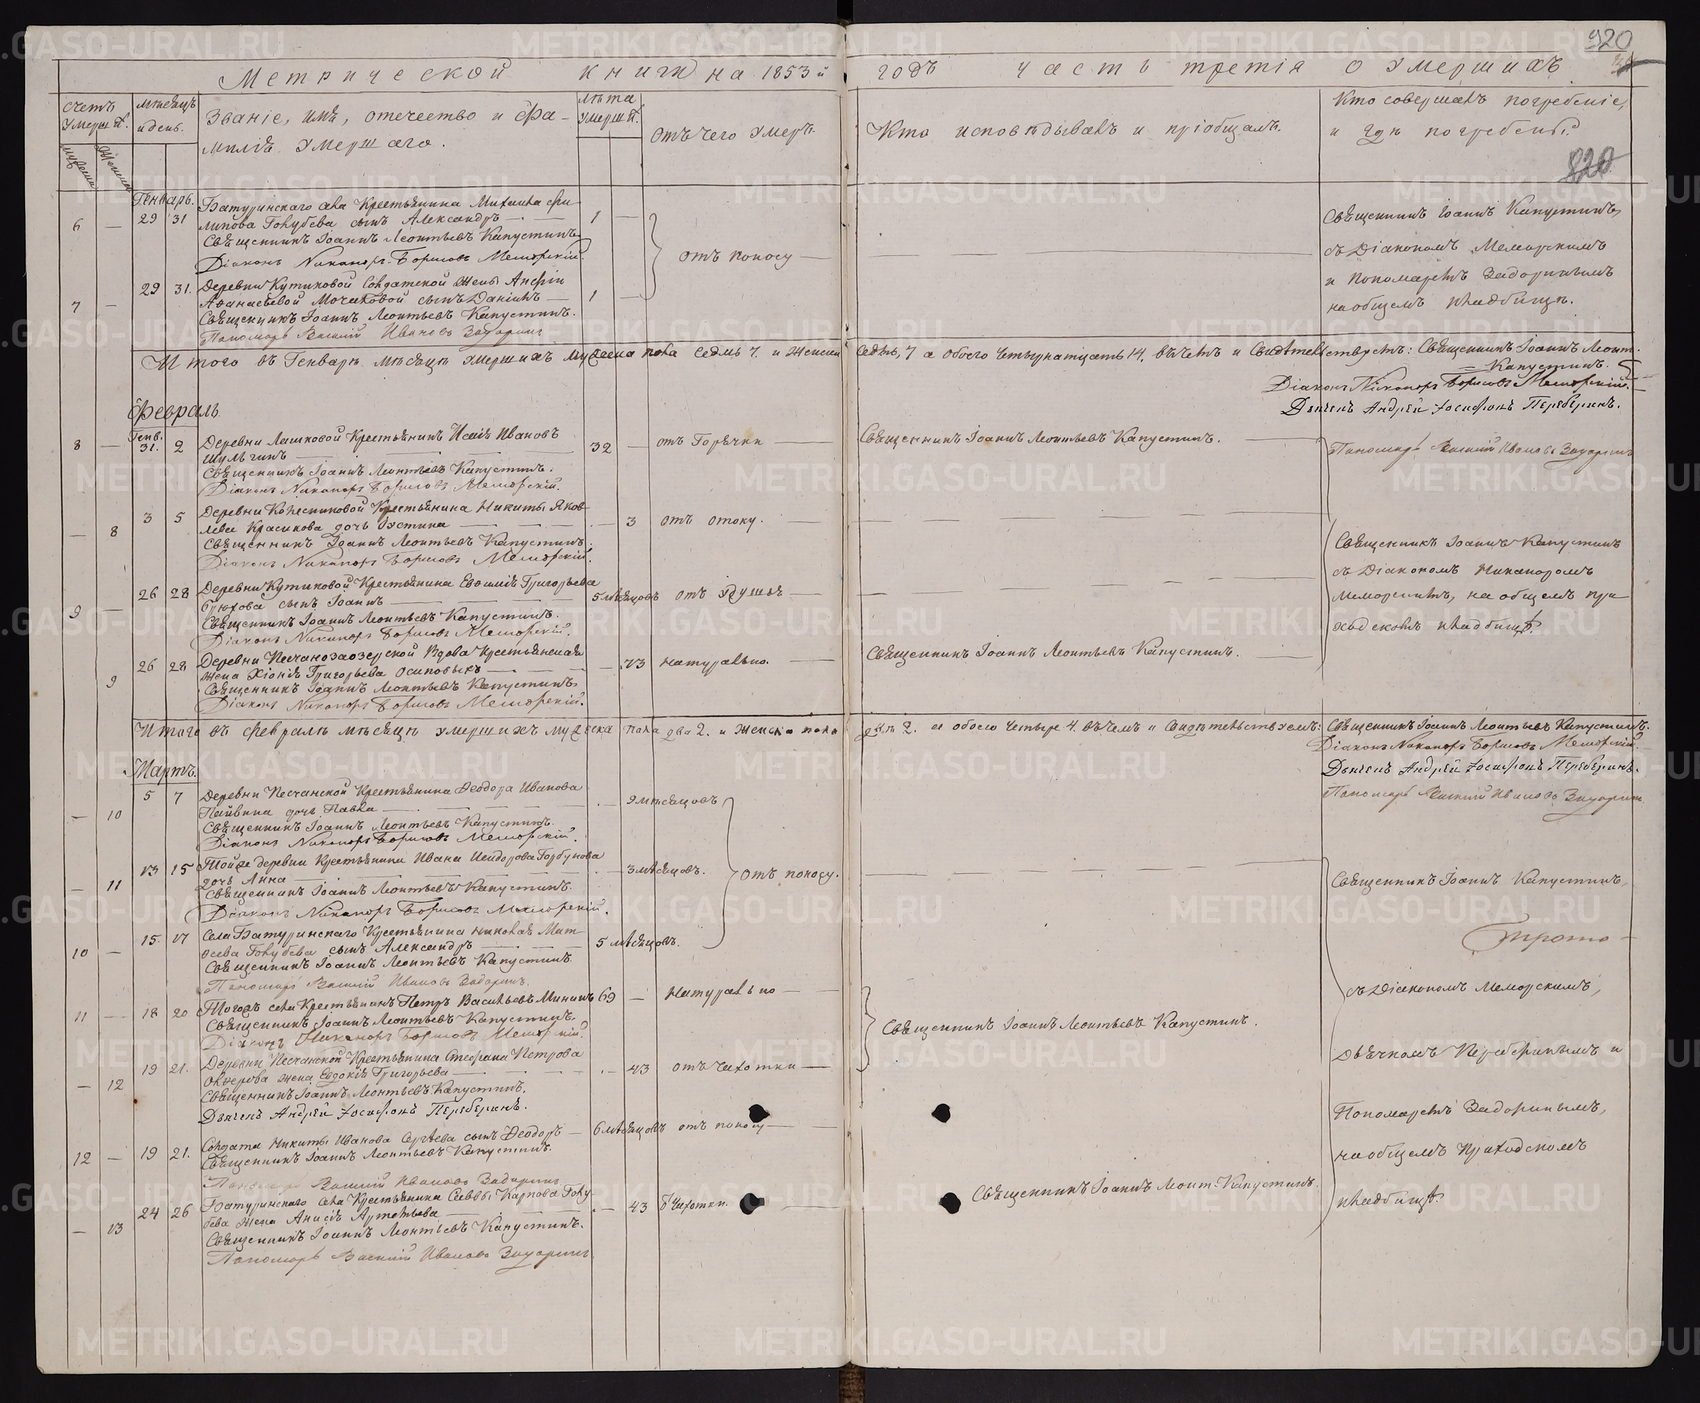 920
Метрической книги на 1853й годъ часть третія о умершихъ
счетъ умершихъ.
мѣсяцъ и день.
Званіе, имя, отечество и фа-
милія умершаго.
лѣта умерш.
отъ чего умеръ.
Кто исповѣдывалъ и пріобщалъ.
Кто совершалъ погребеніе,
и гдѣ погребены.
820
Генварь.
6 — 29 31 Батуринскаго села Крестьянина Михаила Фи-
липова Голубева сынъ Александръ — 1 —
Священникъ Іоаннъ Леонтьевъ Капустинъ
Діаконъ Никаноръ Борисовъ Меморскій.
отъ поносу —
7 — 29 31. Деревни Кутиковой Солдатской жены
Афанасьевой Мочаловой сынъ Даніилъ — 1 —
Священникъ Іоаннъ Леонтьевъ Капустинъ.
Пономарь Василій Ивановъ Задоринъ
Священникъ Іоаннъ Капустинъ
съ Діакономъ Меморскимъ
и Пономаремъ Задоринымъ
на общемъ кладбищѣ.
Итого въ Генварѣ мѣсяцѣ умершихъ мужеска пола седмь 7. и женска седмь, 7 а обоего четырнатцать 14. вѣчемъ и свидѣтельствуемъ: Священникъ Іоаннъ Леонт.
Капустинъ.
Діаконъ Никаноръ Борисовъ Меморскій.
Дьячекъ Андрей Іосифовъ Переберинъ.
Февраль
8 — Генв. 31. 2 Деревни Лашковой Крестьянинъ Исаія Ивановъ
Шульгинъ — 32 — отъ горячки —
Священникъ Іоаннъ Леонтьевъ Капустинъ.
Священникъ Іоаннъ Леонтьевъ Капустинъ.
Діаконъ Никаноръ Борисовъ Меморскій.
Пономарь Василій Ивановъ Задоринъ
— 8 3 5 Деревни Колесниковой Крестьянина Никиты Яков-
лева Красикова дочь Устина — 3 отъ отоку.
Священникъ Іоаннъ Леонтьевъ Капустинъ.
Діаконъ Никаноръ Борисовъ Меморскій.
9 — 26 28 Деревни Кутиковой Крестьянина Евфимія Григорьева
Брюхова сынъ Іоаннъ — 5 мѣсяцовъ отъ удушья —
Священникъ Іоаннъ Леонтьевъ Капустинъ.
Діаконъ Никаноръ Борисовъ Меморскій.
Священникъ Іоаннъ Капустинъ
съ Діакономъ Никаноромъ
Меморскимъ, на общемъ при-
ходскомъ кладбищѣ.
— 9 26 28 Деревни Песчанозаозерской Вдова Крестьянская
жена Хіонія Григорьева Осиповыхъ — 73 натурально. —
Священникъ Іоаннъ Леонтьевъ Капустинъ.
Священникъ Іоаннъ Леонтьевъ Капустинъ.
Діаконъ Никаноръ Борисовъ Меморскій.
Итого въ Февралѣ мѣсяцѣ умершихъ мужеска пола два 2. и женска пола двѣ 2. а обоего четыре 4. вѣчемъ и свидѣтельствуемъ: Священникъ Іоаннъ Леонтьевъ Капустинъ.
Діаконъ Никаноръ Борисовъ Меморскій.
Дьячекъ Андрей Іосифовъ Переберинъ.
Пономарь Василій Ивановъ Задоринъ
Мартъ.
— 10 5 7 Деревни Песчанской Крестьянина Феодора Иванова
Пайвина дочь Павла — 9 мѣсяцовъ
Священникъ Іоаннъ Леонтьевъ Капустинъ.
Діаконъ Никаноръ Борисовъ Меморскій.
— 11 13 15 Той же деревни Крестьянина Ивана Исидорова Горбунова
дочь Анна — 3 мѣсяцовъ. отъ поносу.
Священникъ Іоаннъ Леонтьевъ Капустинъ.
Діаконъ Никаноръ Борисовъ Меморскій.
10 — 15. 17 Села Батуринскаго Крестьянина Николая Мат-
ѳеева Голубева сынъ Александръ — 5 мѣсяцовъ.
Священникъ Іоаннъ Леонтьевъ Капустинъ
Пономарь Василій Ивановъ Задоринъ.
11 — 18 20 Тогожъ села Крестьянинъ Петръ Васильевъ Мининъ 69 — натурально —
Священникъ Іоаннъ Леонтьевъ Капустинъ.
Діаконъ Никаноръ Борисовъ Меморскій.
Священникъ Іоаннъ Леонтьевъ Капустинъ.
— 12 19 21. Деревни Песчанской Крестьянина Стефана Петрова
жена Евдокія Григорьева — 43 отъ чихотки —
Священникъ Іоаннъ Леонтьевъ Капустинъ.
Дьячекъ Андрей Іосифовъ Переберинъ.
12 — 19 21. Солдата Никиты Иванова Сергѣева сынъ Феодоръ — 6 мѣсяцовъ отъ поносу —
Священникъ Іоаннъ Леонтьевъ Капустинъ.
Пономарь Василій Ивановъ Задоринъ
— 13 24 26 Батуринскаго села Крестьянина Саввы Карпова Голу-
бева жена Анисія Артемьева — 43 чихотки. —
Священникъ Іоаннъ Леонт. Капустинъ.
Священникъ Іоаннъ Леонтьевъ Капустинъ.
Пономарь Василій Ивановъ Задоринъ
Священникъ Іоаннъ Капустинъ,
съ Діакономъ Меморскимъ,
Дьячкомъ Переберинымъ и
Пономаремъ Задоринымъ,
на общемъ приходскомъ
кладбищѣ.
METRIKI.GASO-URAL.RU